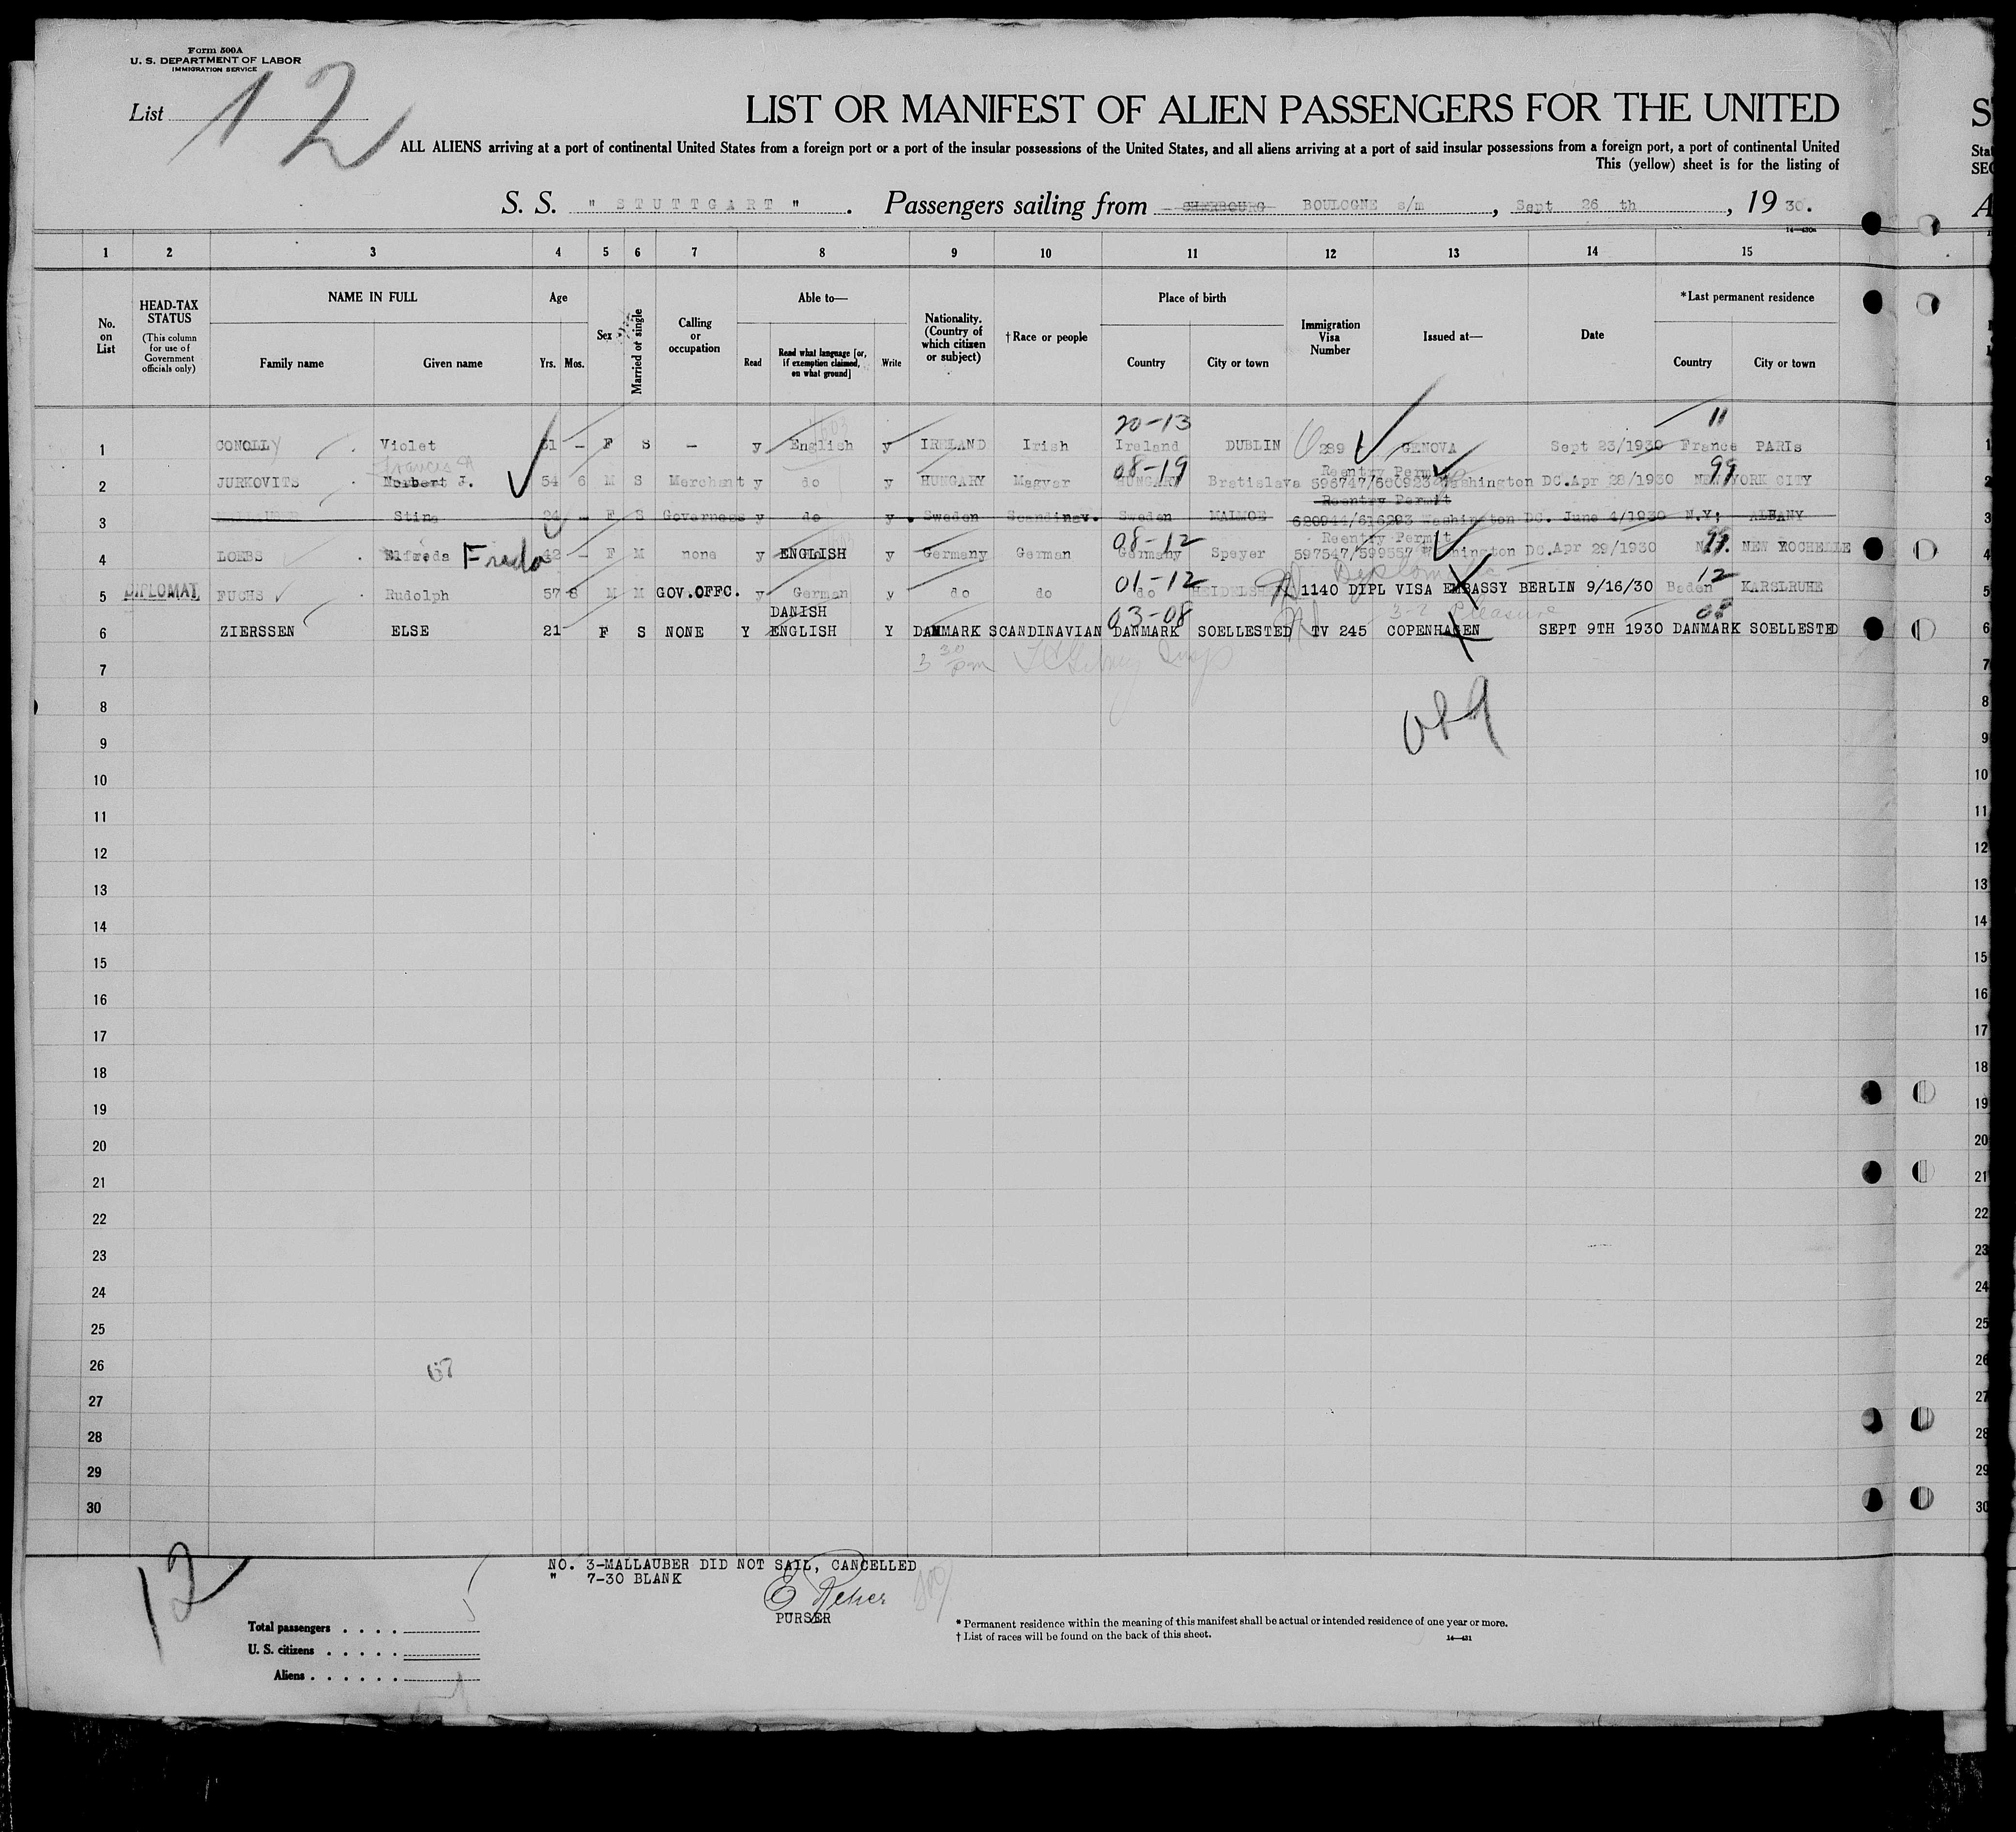 Form 500A
U. S. DEPARTMENT OF LABOR
IMMIGRATION SERVICE
List 12
LIST OR MANIFEST OF ALIEN PASSENGERS FOR THE UNITED
ALL ALIENS arriving at a port of continental United States from a foreign port or a port of the insular possessions of the United States, and all aliens arriving at a port of said insular possessions from a foreign port, a port of continental United
This (yellow) sheet is for the listing of
S. S. " STUTTGART ". Passengers sailing from CHERBOURG BOULOGNE s/m, Sept 26 th, 19 30.
1 2 3 4 5 6 7 8 9 10 11 12 13 14 15
No. on List
HEAD-TAX STATUS
(This column for use of Government officials only)
NAME IN FULL
Family name Given name
Age
Yrs. Mos.
Sex
Married or single
Calling or occupation
Able to—
Read
Read what language [or, if exemption claimed, on what ground]
Write
Nationality. (Country of which citizen or subject)
† Race or people
Place of birth
Country City or town
Immigration Visa Number
Issued at—
Date
* Last permanent residence
Country City or town
20-13 11
1 CONOLLY Violet 31 — F S — y English y IRELAND Irish Ireland DUBLIN 289 GENOVA Sept 23/1930 France PARIs 1
Frances A 08-19 Reentry Permit 99
2 JURKOVITS Norbert J. 54 6 M S Merchant y do y HUNGARY Magyar HUNGARY Bratislava 596747/600923 Washington DC. Apr 28/1930 NEW YORK CITY 2
Reentry Permit
3 MALLAUBER Stina 24 — F S Governess y do y. Sweden Scandinav. Sweden MALMOE 620944/616293 Washington DC. June 4/1930 N.Y; ALBANY 3
08-12 Reentry Permit 99
4 LOEBS Elfreda Freda 42 — F M none y ENGLISH y Germany German Germany Speyer 597547/599557 Washington DC. Apr 29/1930 N.Y. NEW ROCHELLE 4
01-12 Diplomatic 12
5 DIPLOMAT FUCHS Rudolph 57 8 M M GOV.OFFC. y German y do do do HEIDELSHEIM 1140 DIPL VISA EMBASSY BERLIN 9/16/30 Baden KARSLRUHE 5
DANISH 03-08 3-2 Pleasure 08
6 ZIERSSEN ELSE 21 F S NONE Y ENGLISH Y DANMARK SCANDINAVIAN DANMARK SOELLESTED TV 245 COPENHAGEN SEPT 9TH 1930 DANMARK SOELLESTED 6
3 30 pm
7 7
8 8
9 9
10 10
11 11
12 12
13 13
14 14
15 15
16 16
17 17
18 18
19 19
20 20
21 21
22 22
23 23
24 24
25 25
26 26
27 27
28 28
29 29
30 30
12
NO. 3-MALLAUBER DID NOT SAIL, CANCELLED
" 7-30 BLANK
PURSER
Total passengers . . . .
U. S. citizens . . . . .
Aliens . . . . . .
* Permanent residence within the meaning of this manifest shall be actual or intended residence of one year or more.
† List of races will be found on the back of this sheet.
14—431